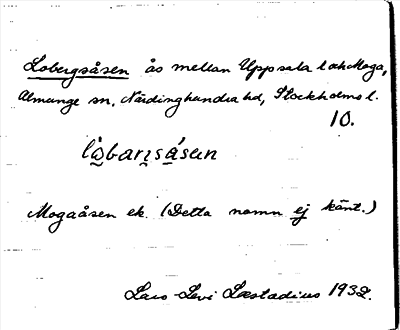 Lobergsåsen ås mellan Uppsala l. och Moga,
Almunge sn, Närdinghundra hd, Stockholms l.
10.
Mogaåsen ek. (Detta namn ej känt.)
Lars-Levi Læstadius 1932.